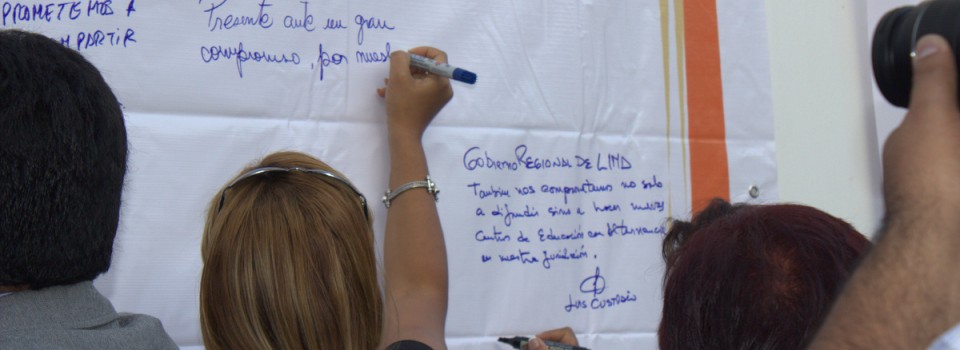 PROMETEMOS A
COMPARTIR
Presente ante un gran
compromiso, por nuest
Gobierno REGIONAL DE LIMA
También nos comprometemos no solo
a difundir sino a hacer nuevos
Centros de Educación con Alternancia
en nuestra jurisdicción.
Luis Custodio